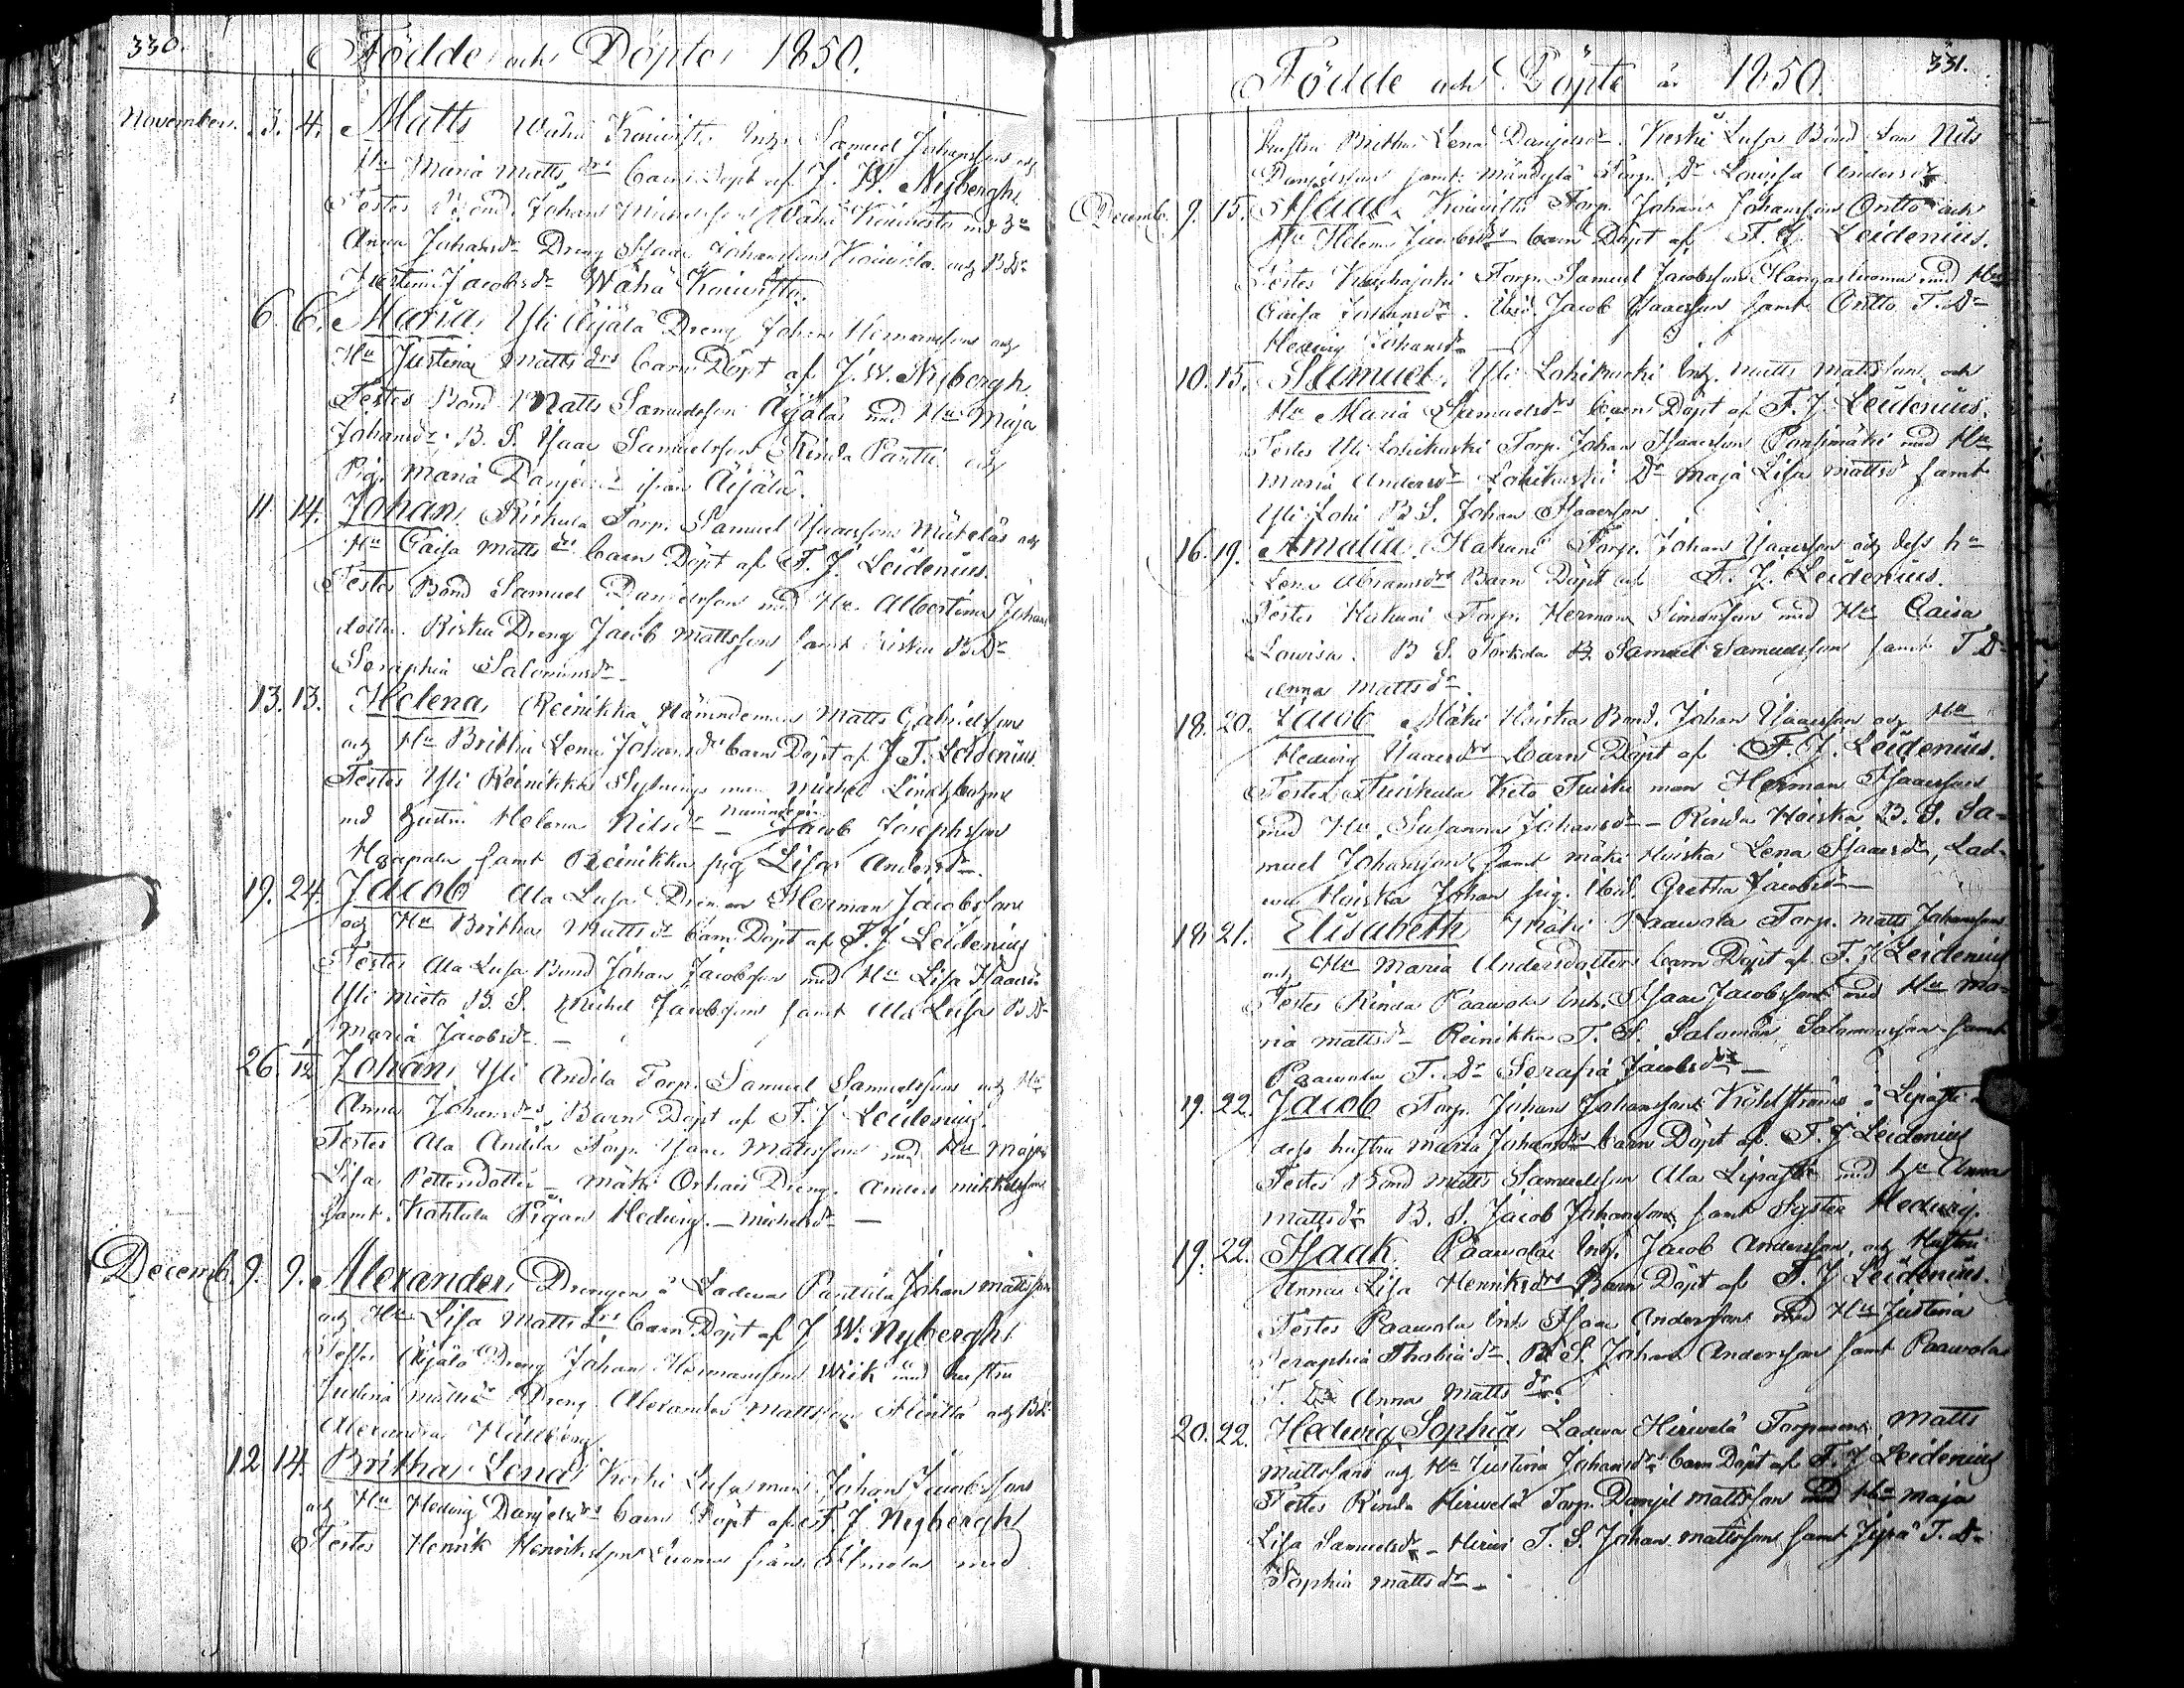 330.
Födde och Döpte 1850.
November. 3. 4. Matts Wähä Koiwisto Inh. Samuel Johansson och
Hu Maria Matts drs barn Döpt af J. W. Nybergh.
Testes Bond. Johan Wähä Koiwisto md Hu
Anna Johansdr Dreng Isaac Johansson Koiwisto och B Dr
Justina Jacobsdr Wähä Koiwisto.
6. 6. Maria, Yli Äijälä Dreng Johan Hermansson och
Hu Justina Matts drs barn Döpt af J. W. Nybergh.
Testes Bond Matts Samuelsson Äijälä med Hu Maja
Johansdr B. S. Isaac Samuelsson Rinda Pantti och
Pig. Maria ifrån Äijälä.
11. 14. Johan, Riskula Torp. Samuel Isaacsson Mäkelä och
Hu Caisa Matts drs barn Döpt af F. J. Leidenius.
Testes Bond Samuel Danielsson med Hu Albertina Johans
dotter. Risku Dreng Jacob Mattsson samt Risku B Dr
Seraphia Salomonsdr
13. 13. Helena, Reinikka Nämndeman Matts Gabrielsson
och Hu Britha Lena Johansdrs barn Döpt af J. F. Leidenius.
Testes Yli Reinikka Michel
md hustru Helena Nilsdr – Jacob Josephsson
Haapala samt Reinikka pig Lisa Andersdr.
19. 24. Jacob Ala Lusa Herman Jacobsson
och Hu Britha Mattsdr barn Döpt af F. J. Leidenius
Testes Ala Lusa Bond Johan Jacobsson med Hu Lisa Isaacsdr
Yli Mieto B. S. Michel Jacobsson samt Ala Lusa B Dr
Maria Jacobsdr –
26. 1/12 Johan, Yli Andila Torp. Samuel Samuelsson och Hu
Anna Johansdrs Barn Döpt af F. J. Leidenius.
Testes Ala Andila Torp. Isaac Mattsson med Hu Maja
Lisa Pettersdotter – Mäki Dreng. Anders Mikkelsson
samt Kohtala Pigan Hedwig – Michelsdr –
Decemb. 9. 9. Alexander, Drengen å Ladwa Panttila Johan Mattsson
och Hu Lisa Matts drs barn Döpt af J W. Nybergh
Testes Äijälä Dreng Johan Hermansson Wiik med hustru
Justina Mattsdr Dreng Alexander Mattsson och B Dr
Alexandra
12. 14. Britha Lena Koski Lusa man Johan Jacobsson
och Hu Hedwig Danjelsdrs barn Döpt af F. J. Nybergh
Testes Henrik Henriksson Luoma från Ilmola med
331.
Födde och Döpte år 1850.
hustru Britha Lena Danjelsdr. Koski Lusa Bond Son Nils
Danjelsson samt Mändylä Torp. Dr Lowisa Andersdr
Decemb. 9. 15. Isaac, Koiwisto Torp. Johan Johansson Ontto och
Hu Helena Jacobsdrs barn Döpt af F. J. Leidenius.
Testes Kauhajoki Torp. Samuel Jacobsson Hangasluoma med Hu
Caisa Johansdr. Jacob Isaacsson samt Ontto T. Dr
Hedwig Johansdr
10. 15. Samuel, Yli Lohikoski Inh. Matts Mattsson och
Hu Maria Samuelsdrs barn Döpt af F. J. Leidenius.
Testes Yli Lohikoski Torp. Johan Isaacsson med Hu
Maria Andersdr Lohikoski Dr Maja Lisa Mattsdr samt
Yli Lohi B S. Johan Isaacsson
16. 19. Amalia, Hakuni Torp. Johan Isaacsson och dess hu
Lena Abramsdrs Barn Döpt af F. J. Leidenius.
Testes Hakuni Torp. Herman Simonsson med Hu Caisa
Lowisa. B S. Torkola B. Samuel Samuelsson samt T Dr
Anna Mattsdr.
18. 20. Jacob Mäki Hoiska Bond. Johan Isaacsson och Hu
Hedwig Isaacsdrs barn Döpt af F. J. Leidenius.
Testes Tuiskula Keto Tuisku man Herman Isaacsson
med Hu Susanna Johansdr – Rinda Hoiska B. S. Sa-
muel Johansson, samt Mäki Hoiska Lena Isaacsdr, Lad-
wa Hoiska Johan pig. Gretha Jacobsdr –
18. 21. Elisabeth Mäki Paawola Torp. Matts Johansson
och Hu Maria Andersdotters barn Döpt af F. J. Leidenius
Testes Rinda Paawola Inh. Isaac Jacobsson med Hu Ma-
ria Mattsdr Reinikka T. S. Salomon Salomonsson samt
Paawola T. Dr Serafia Jacobsdr –
19. 22. Jacob Torp. Johan Johansson å
dess hustru Maria Johansdrs barn Döpt af F. J. Leidenius
Testes Bond Matts Samuelsson Ala med hu Anna
Mattsdr B. S. Jacob Johansson samt Syster Hedwig.
19. 22. Isaak Paawola Inh. Jacob Andersson och Hustru
Anna Lisa Henriksdrs Barn Döpt af F. J Leidenius.
Testes Paawola Inh. Isaac Andersson med Hu Justina
Seraphia dr. B S. Johan Andersson samt Paawola
T. Dr Anna Matts dr.
20. 22. Hedwig Sophia Ladwa Hirwelä Torparen Matts
Mattsson och Hu Justina Johansdrs barn Döpt af F. J Leidenius
Testes Rinda Hirwelä Torp. Danjel Mattsson med Hu Maja
Lisa Samuelsdr – Hirwi T. S. Johan Mattsson samt Jyrä T. Dr
Sophia Mattsdr –